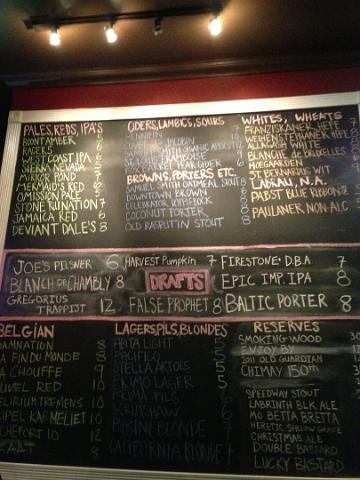 PALES, REDS, IPA'S
BOONT AMBER 5
RACER 5
WEST COAST IPA
SIERRA NEVADA
MIRROR POND
MERMAID'S RED
OMISSION PALE 5
STONE RUINATION 7
JAMAICA RED 6
DEVIANT DALE'S 8
CIDERS, LAMBICS, SOURS
HENNIPIN 7
JACOBIN 10
SAMUEL SMITH ORGANIC APRICOT 12
ST. LOUIS FRAMBOISE
FOX BARREL PEAR CIDER 6
BROWNS, PORTERS ETC.
SAMUEL SMITH OATMEAL STOUT 8
DOWNTOWN BROWN 6
CELEBRATOR DOPPELBOCK 8
COCONUT PORTER 8
OLD RASPUTIN STOUT
WHITES, WHEATS
FRANZISKANER HEFE 7
WEIHENSTEPHANER HEFE
ALLAGASH WHITE
BLANCHE de BRUXELLES
HOEGAARDEN
ST. BERNARDUS WIT
LABBAU N.A.
PABST BLUE RIBBON
PAULANER NON-ALC
JOE'S PILSNER 6
BLANCH DE CHAMBLY 8
GREGORIUS
TRAPPIST 12
HARVEST PUMPKIN 7
DRAFTS
FALSE PROPHET 8
FIRESTONE D.B.A. 7
EPIC IMP. IPA 8
BALTIC PORTER 8
BELGIAN
DAMNATION 8
LA FIN DU MONDE 8
LA CHOUFFE 9
DUVEL RED 10
DELIRIUM TREMENS 10
TRIPEL KARMELIET 10
ROCHEFORT 10 12
8
LAGERS, PILS, BLONDES
ABITA LIGHT 5
PACIFICO 5
STELLA ARTOIS 5
EKIMO LAGER 5
PRIMA PILS 6
SCRIMSHAW 6
BIKINI BLONDE 7
CALIFORNIA BLONDE 7
RESERVES
SMOKING WOOD 30
ENJOY BY
2011 OLD GUARDIAN
CHIMAY 150th 30
SPEEDWAY STOUT
LABRINTH BLK ALE
MO BETTA BRETTA
CHRISTMAS ALE
DOUBLE BASTARD
LUCKY BASTARD